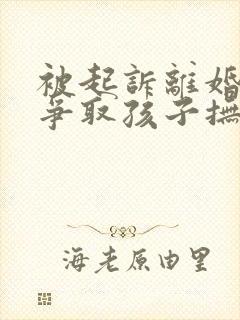 被起訴離婚
爭取孩子撫
海老原由里